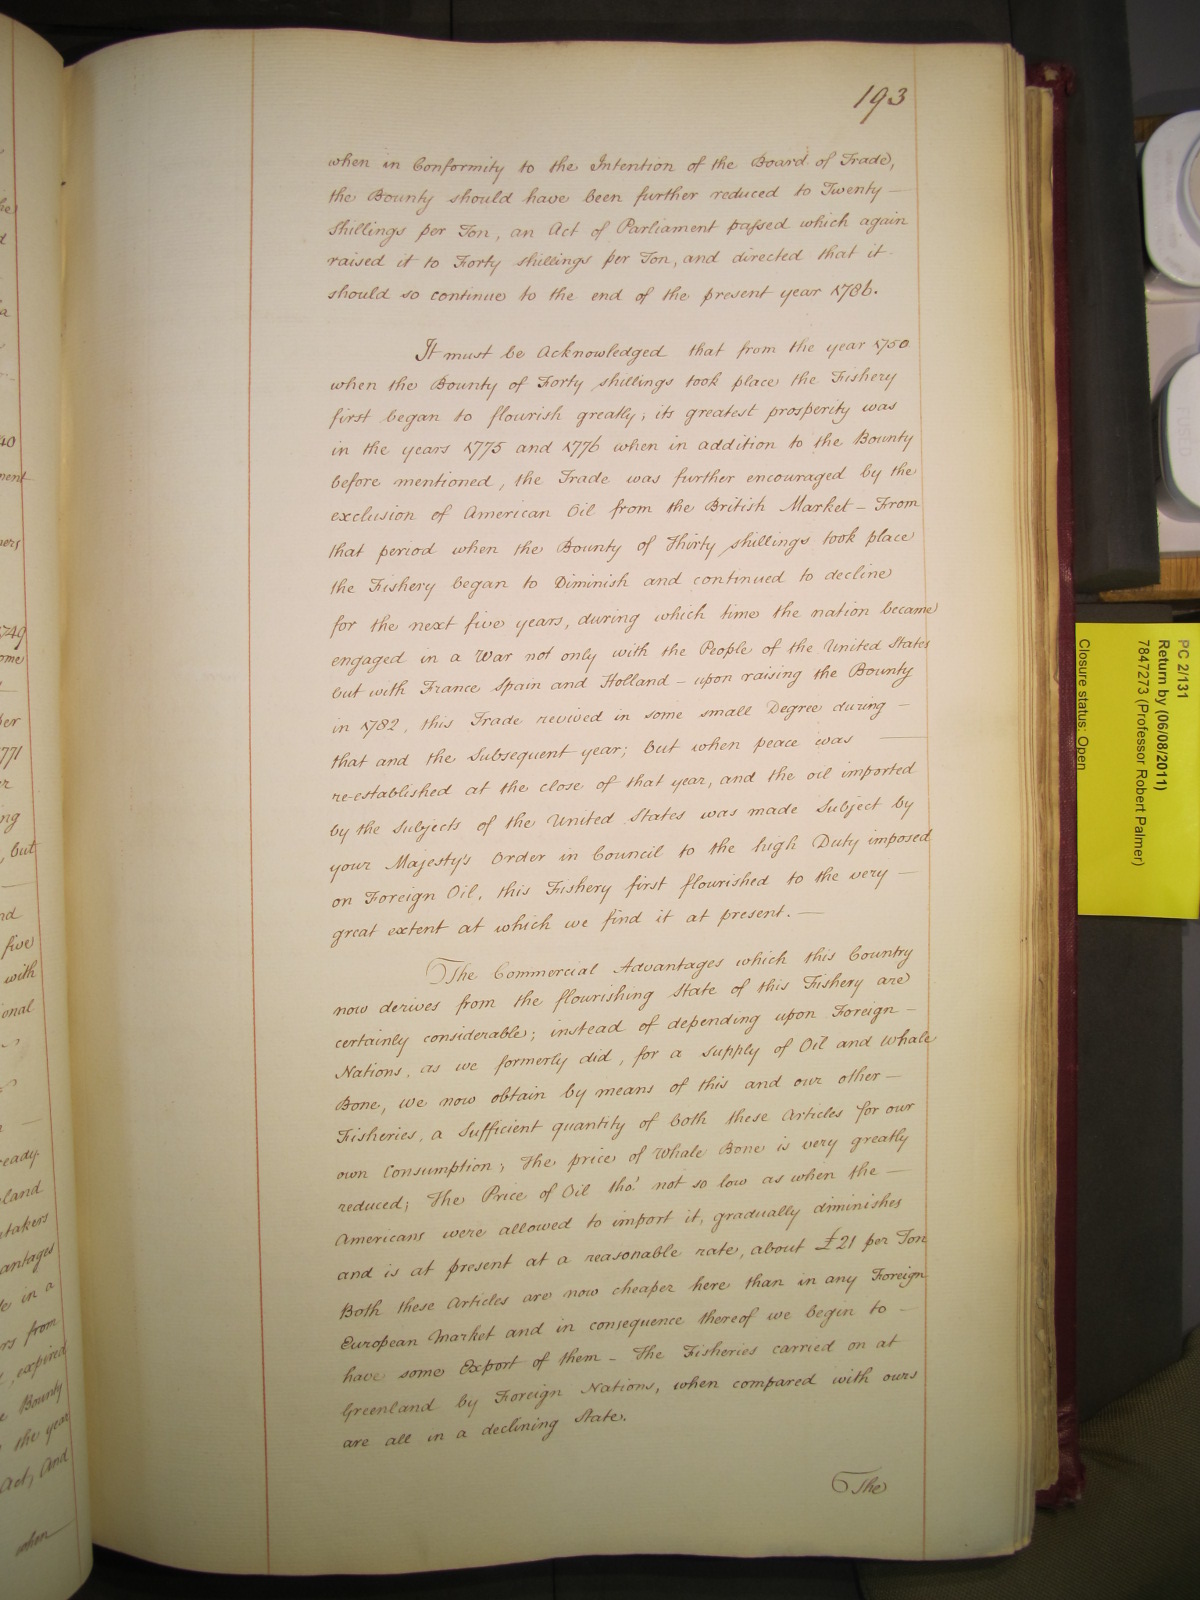 193
when in Conformity to the Intention of the Board of Trade,
the Bounty should have been further reduced to Twenty —
Shillings per Ton, an Act of Parliament passed which again
raised it to Forty shillings per Ton, and directed that it
should so continue to the end of the present year 1786.
It must be Acknowledged that from the year 1750
when the Bounty of Forty shillings took place the Fishery
first began to flourish greatly; its greatest prosperity was
in the years 1775 and 1776 when in addition to the Bounty
before mentioned, the Trade was further encouraged by the
exclusion of American Oil from the British Market – From
that period when the Bounty of Thirty shillings took place
the Fishery began to Diminish and continued to decline
for the next five years, during which time the nation became
engaged in a War not only with the People of the United States
but with France Spain and Holland – upon raising the Bounty
in 1782, this Trade revived in some small Degree during —
that and the Subsequent year; but when peace was —
re-established at the close of that year, and the oil imported
by the Subjects of the United States was made Subject by
your Majesty's Order in Council to the high Duty imposed
on Foreign Oil, this Fishery first flourished to the very —
great extent at which we find it at present. —
The Commercial Advantages which this Country
now derives from the flourishing State of this Fishery are
certainly considerable; instead of depending upon Foreign —
Nations, as we formerly did, for a supply of Oil and Whale
Bone, we now obtain by means of this and our other —
Fisheries, a Sufficient quantity of both these Articles for our
own Consumption; The price of Whale Bone is very greatly
reduced; The Price of Oil tho' not so low as when the —
Americans were allowed to import it, gradually diminishes
and is at present at a reasonable rate, about £21 per Ton
Both these Articles are now cheaper here than in any Foreign
European Market and in consequence thereof we begin to —
have some Export of them – The Fisheries carried on at
Greenland by Foreign Nations, when compared with ours
are all in a declining State.
The
PC 2/131
Return by (06/08/2011)
7847273 (Professor Robert Palmer)
Closure status: Open
40
1749
771
ing
, but
nd
five
with
ional
land
antages
in a
from
expired
Bounty
the year
Act, And
when